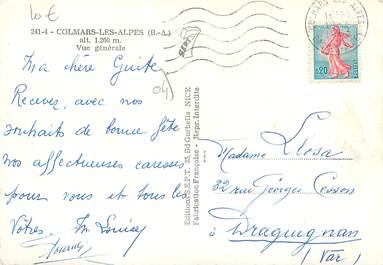 10 €
241-4 - COLMARS-LES-ALPES (B.-A.)
alt. 1.250 m.
Vue générale
Ma chère Guite
Recevez, avec nos
souhaits de bonne fête
nos affectueuses caresses
pour vous et tous les
Vôtres.
04
Edition S.E.P.T. 55, Bd Gorbella NICE
Fabrication Française - Repr. Interdite
0,20
Madame
32 rue Georges
à Draguignan
(Var)